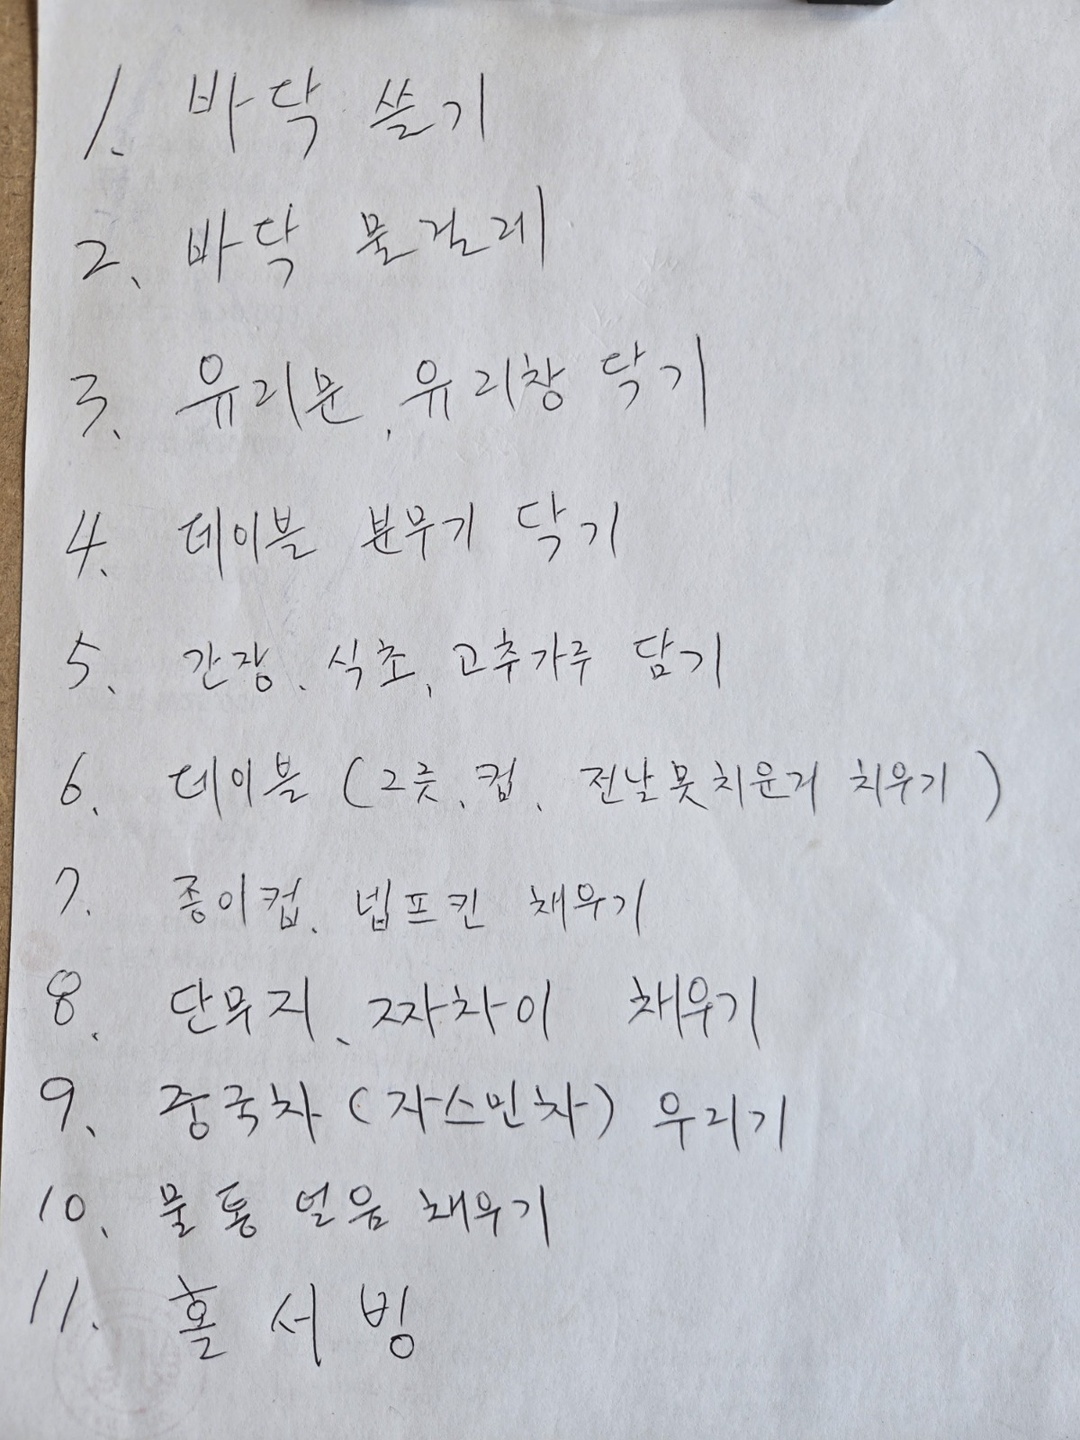 1. 바닥 쓸기
2. 바닥 물걸레
3. 유리문, 유리창 닦기
4. 테이블 분무기 닦기
5. 간장, 식초, 고추가루 담기
6. 테이블 (그릇, 컵, 전날 못치운거 치우기)
7. 종이컵, 넵프킨 채우기
8. 단무지, 짜차이 채우기
9. 중국차 (자스민차) 우리기
10. 물통 얼음 채우기
11. 홀 서빙